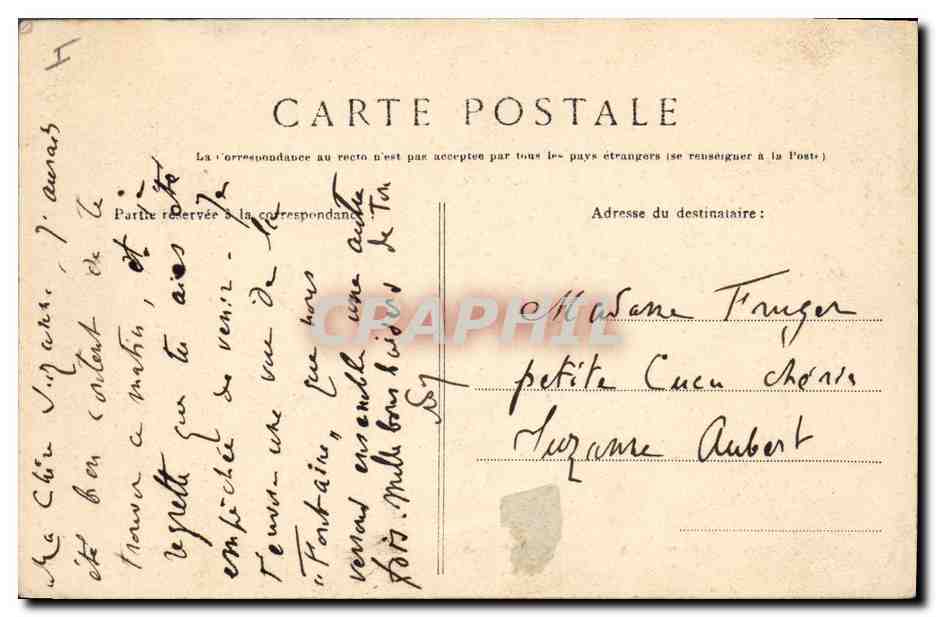 CARTE POSTALE
La Correspondance au recto n'est pas acceptée par tous les pays étrangers (se renseigner à la Poste)
Partie réservée à la correspondance
Adresse du destinataire :
Ma chère Suzanne, j'aurais
été bien content de te
trouver ce matin, et je
regrette que tu aies été
empêchée de venir. Je
t'envoie une vue de la
"Fontaine" que nous
verrons ensemble une autre
fois. Mille bons baisers de ton
Madame
petite Cucu chérie
Suzanne Aubert
CRAPHIL